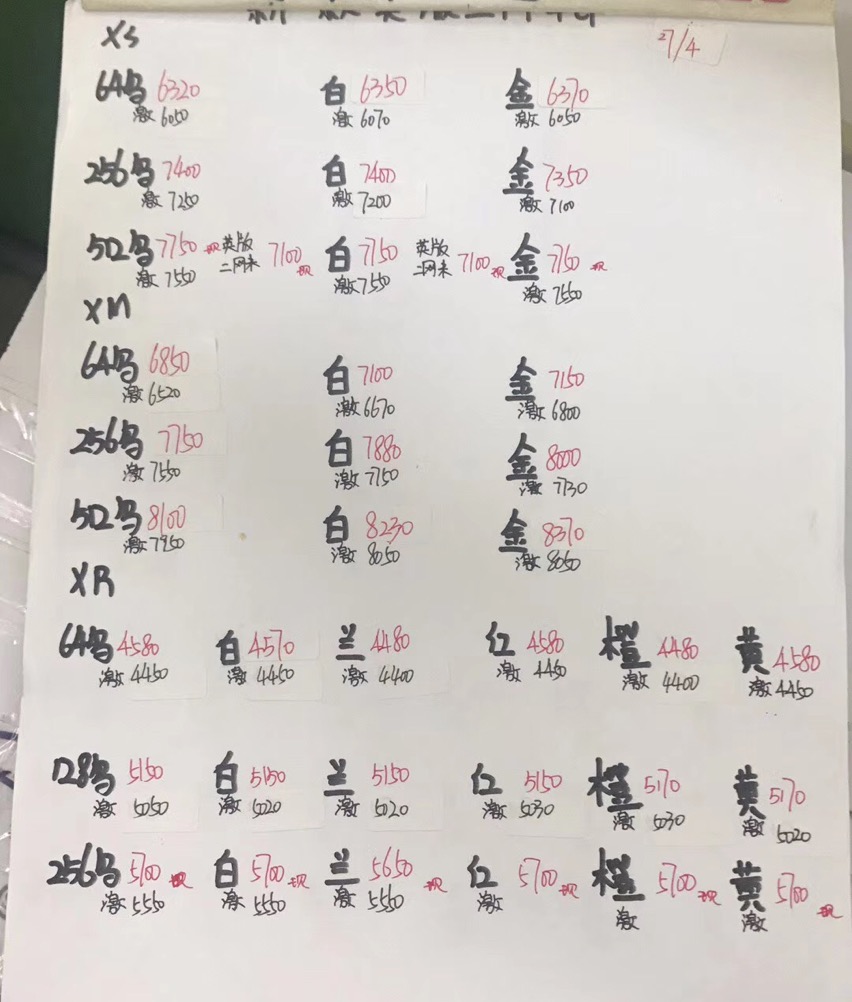 27/4
XS
64乌 6320 白 6350 金 6370
激 6050 激 6070 激 6050
256乌 7400 白 7400 金 7350
激 7250 激 7200 激 7100
512乌 7750 现 英版 7100 现 白 7750 英版 7100 现 金 7750 现
二网未 二网未
激 7550 激 7550 激 7550
XM
64乌 6850 白 7100 金 7150
激 6520 激 6670 激 6800
256乌 7750 白 7880 金 8000
激 7550 激 7750 激 7730
512乌 8100 白 8230 金 8370
激 7950 激 8050 激 8050
XR
64乌 4580 白 4570 兰 4480 红 4580 橙 4480 黄 4580
激 4450 激 4450 激 4400 激 4450 激 4400 激 4450
128乌 5150 白 5150 兰 5150 红 5150 橙 5170 黄 5170
激 5050 激 5020 激 5020 激 5030 激 5030 激 5020
256乌 5700 现 白 5700 现 兰 5650 现 红 5700 现 橙 5700 现 黄 5700 现
激 5550 激 5550 激 5550 激 激 激